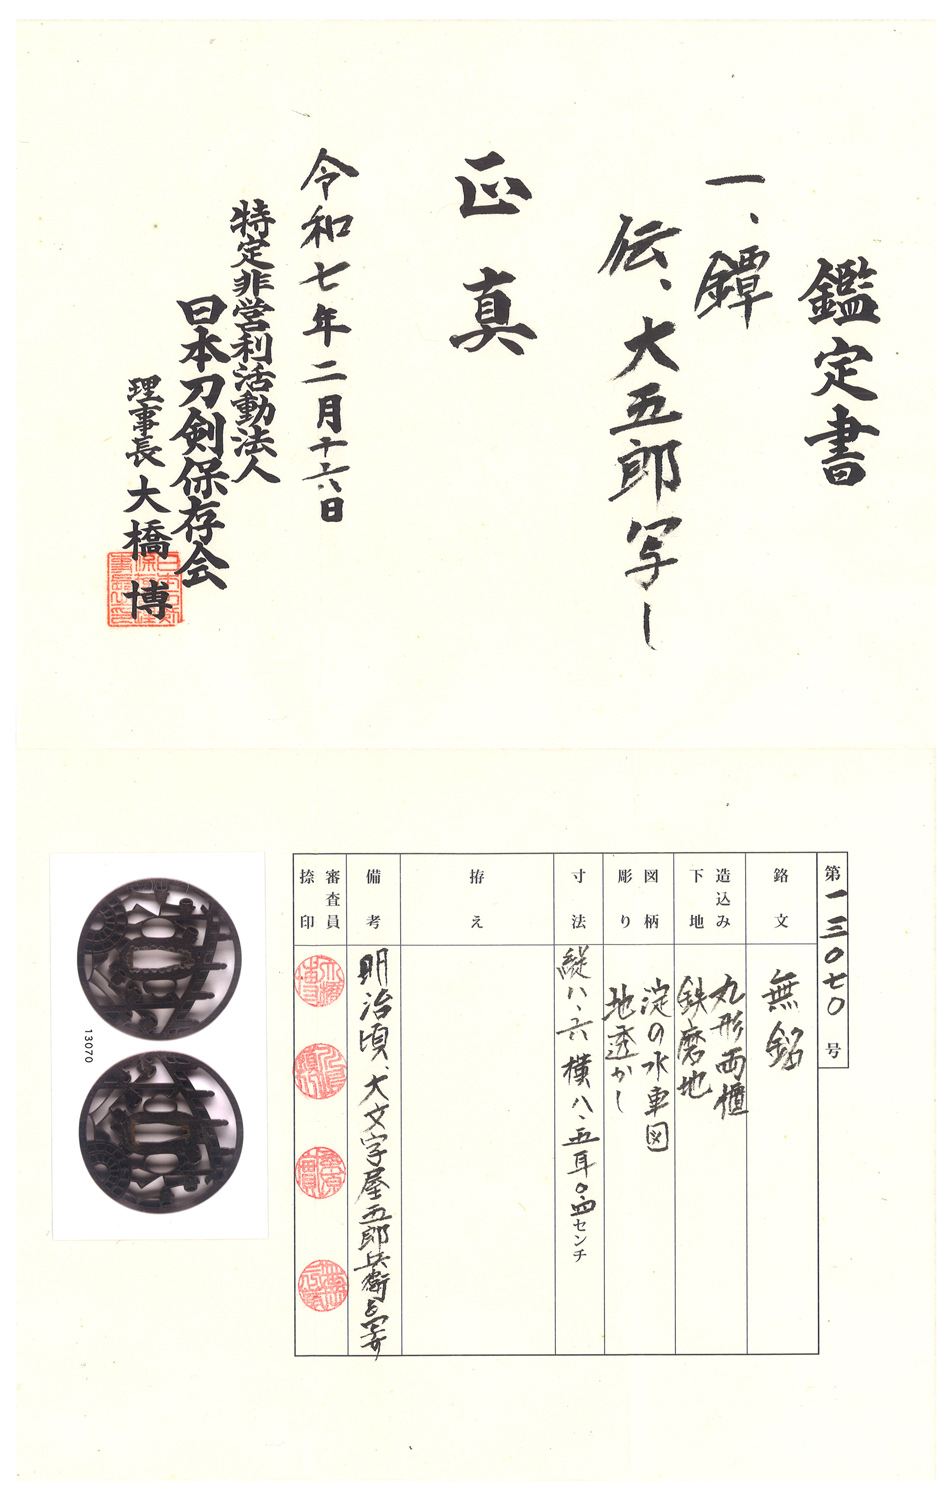 鑑定書
一、鐔
伝、大五郎写し
正真
令和七年二月十六日
特定非営利活動法人
日本刀剣保存会
理事長 大橋博
第一三〇七〇号
銘文
無銘
造込み
下地
丸形両櫃
鉄磨地
図柄
彫り
淀の水車図
地透かし
寸法
縦八、六 横八、五 耳〇、四センチ
拵え
備考
明治頃、大文字屋五郎兵衛
審査員
捺印
13070